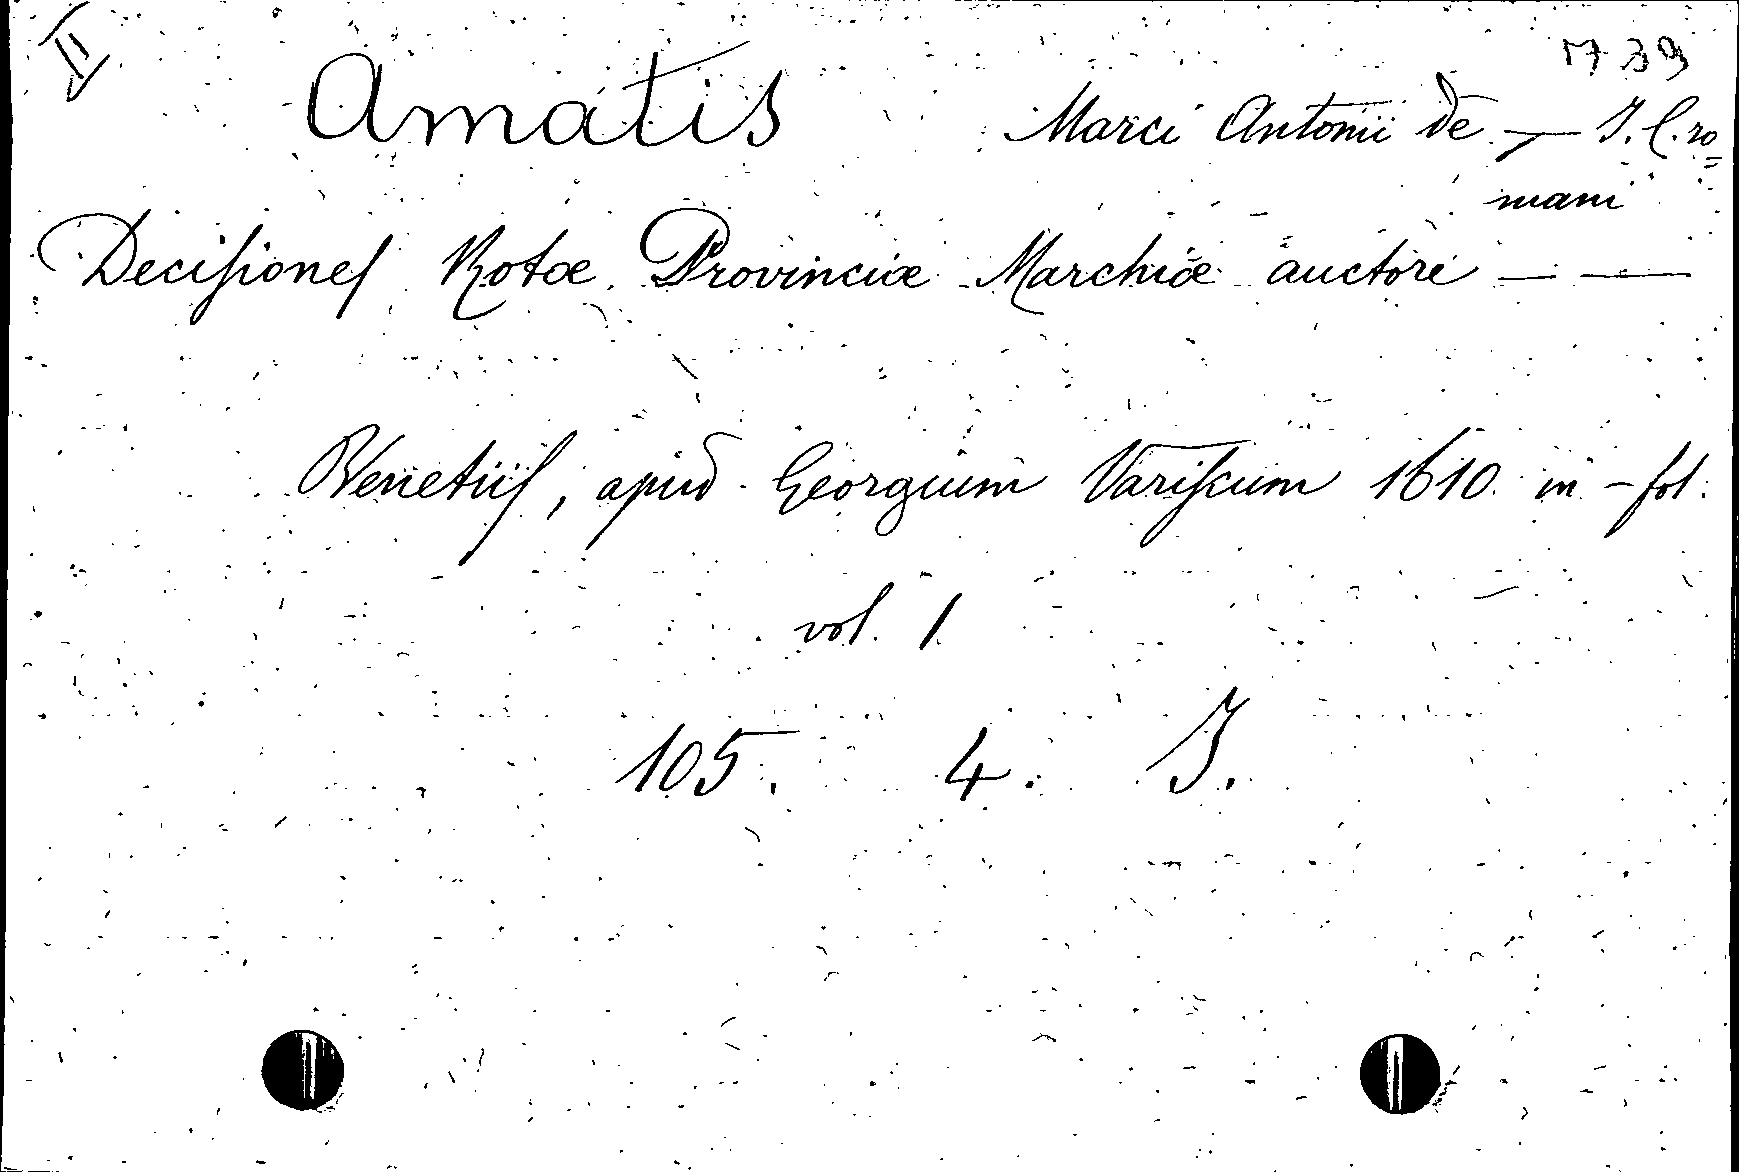 II
1739
Amatis Marci Antonii de — J. C. ro=
mani
Decisiones Rotæ Provinciæ Marchiæ auctore — —
Venetiis, apud Georgium Variscum 1610. in-fol.
vol. 1
105. 4. J.